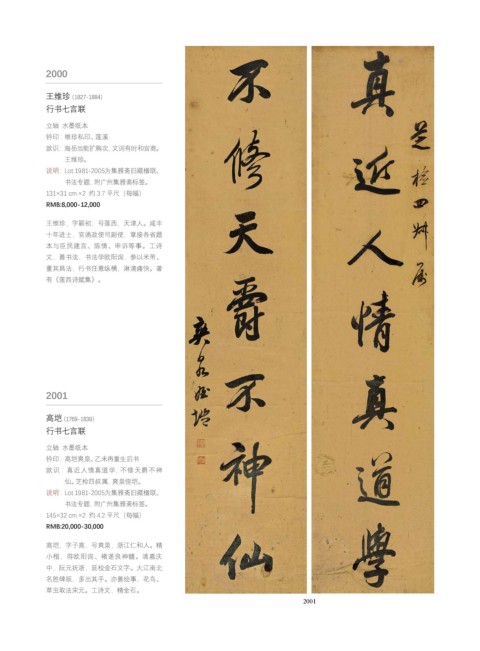 2000
王维珍 (1827-1884)
行书七言联
立轴 水墨纸本
钤印：维珍私印、莲溪
款识：海岳当能扩胸次，文词有时和宫商。
王维珍。
说明：Lot 1981-2005为集雅斋旧藏楹联、
书法专题，附广州集雅斋标签。
131×31 cm.×2 约 3.7 平尺（每幅）
RMB:8,000-12,000
王维珍，字颖初，号莲西，天津人。咸丰
十年进士，官通政使司副使，掌接各省题
本与臣民建言、陈情、申诉等事。工诗
文、善书法，书法学欧阳询，参以米芾。
董其昌法，行书任意纵横，淋漓痛快。著
有《莲西诗赋集》。
2001
高垲 (1769-1839)
行书七言联
立轴 水墨纸本
钤印：高垲爽泉、乙未再重生后书
款识：真近人情真道学，不修天爵不神
仙。芝检四叔属，爽泉侄垲。
说明：Lot 1981-2005为集雅斋旧藏楹联、
书法专题，附广州集雅斋标签。
145×32 cm.×2 约 4.2 平尺（每幅）
RMB:20,000-30,000
高垲，字子高，号爽泉，浙江仁和人。精
小楷，得欧阳询、褚遂良神髓。清嘉庆
中，阮元抚浙，延校金石文字。大江南北
名胜碑版，多出其手。亦善绘事，花鸟、
草虫取法宋元。工诗文，精金石。
真近人情真道學
芝检四叔属
不脩天爵不神仙
爽泉姪垲
2001